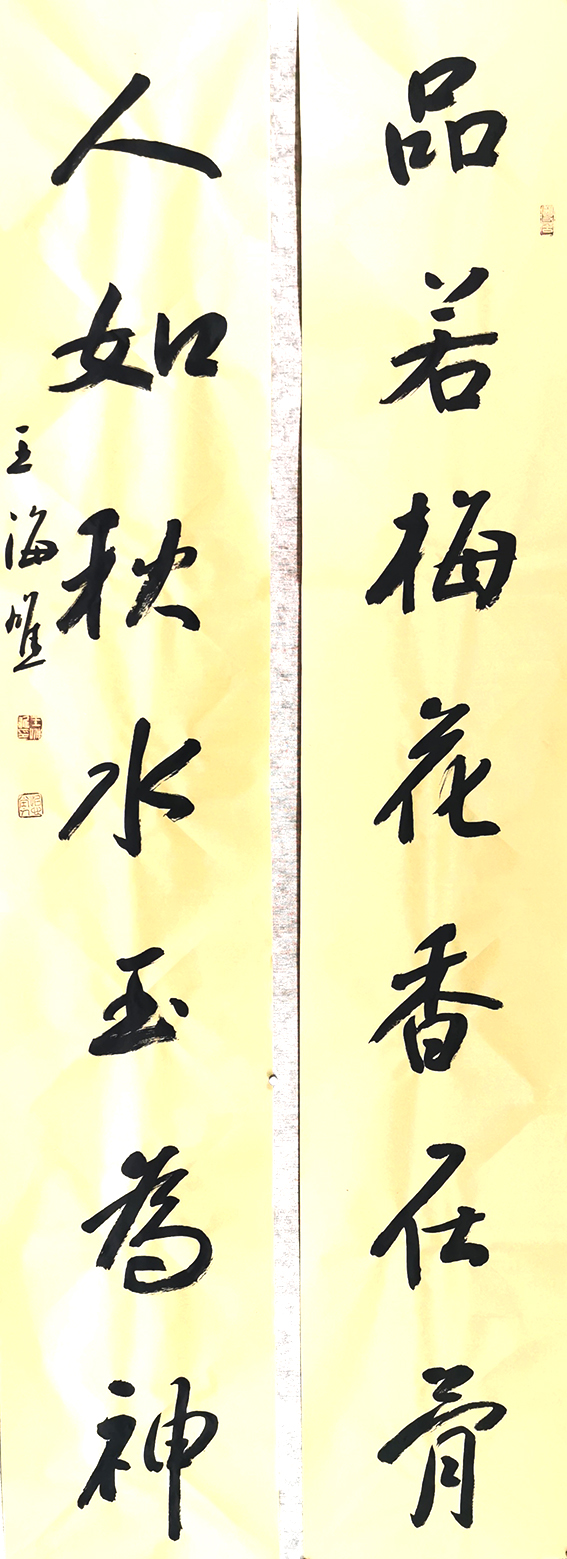 品若梅花香在骨
人如秋水玉為神
王海